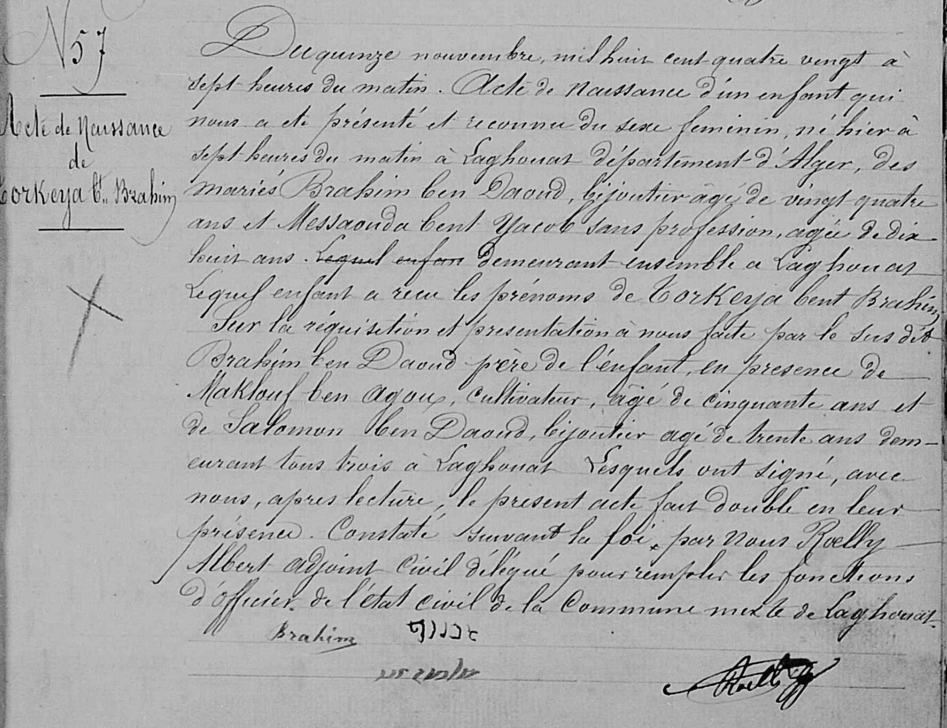 N 57
Acte de Naissance
de
Torkeya Bt. Brahim
Du quinze nouvembre, mil huit cent quatre vingt à
sept heures du matin. Acte de Naissance d'un enfant qui
nous a eté présenté et reconnu du sexe feminin, né hier à
sept heures du matin à Laghouat département d'Alger, des
mariés Brahim ben Daoud, bijoutier âgé de vingt quatre
ans et Messaouda bent Yacob sans profession, agée de dix
huit ans. Lequel enfan demeurant ensemble a Laghouat
Lequel enfant a recu les prénoms de Torkeya bent Brahim
Sur la réquisition et presentation à nous faite par le sus dit
Brahim ben Daoud père de l'enfant, en presence de
Maklouf ben Agou, cultivateur, âgé de cinquante ans et
de Salomon ben Daoud, bijoutier agé de trente ans dem-
eurant tous trois à Laghouat Lesquels ont signé, avec
nous, apres lecture, le present acte fait double en leur
présence. Constaté suivant la foi, par Nous Roelly
Albert adjoint Civil délégué pour remplir les fonctions
d'Officier de l'état civil de la Commune mixte de Laghouat.
Brahim
Roelly